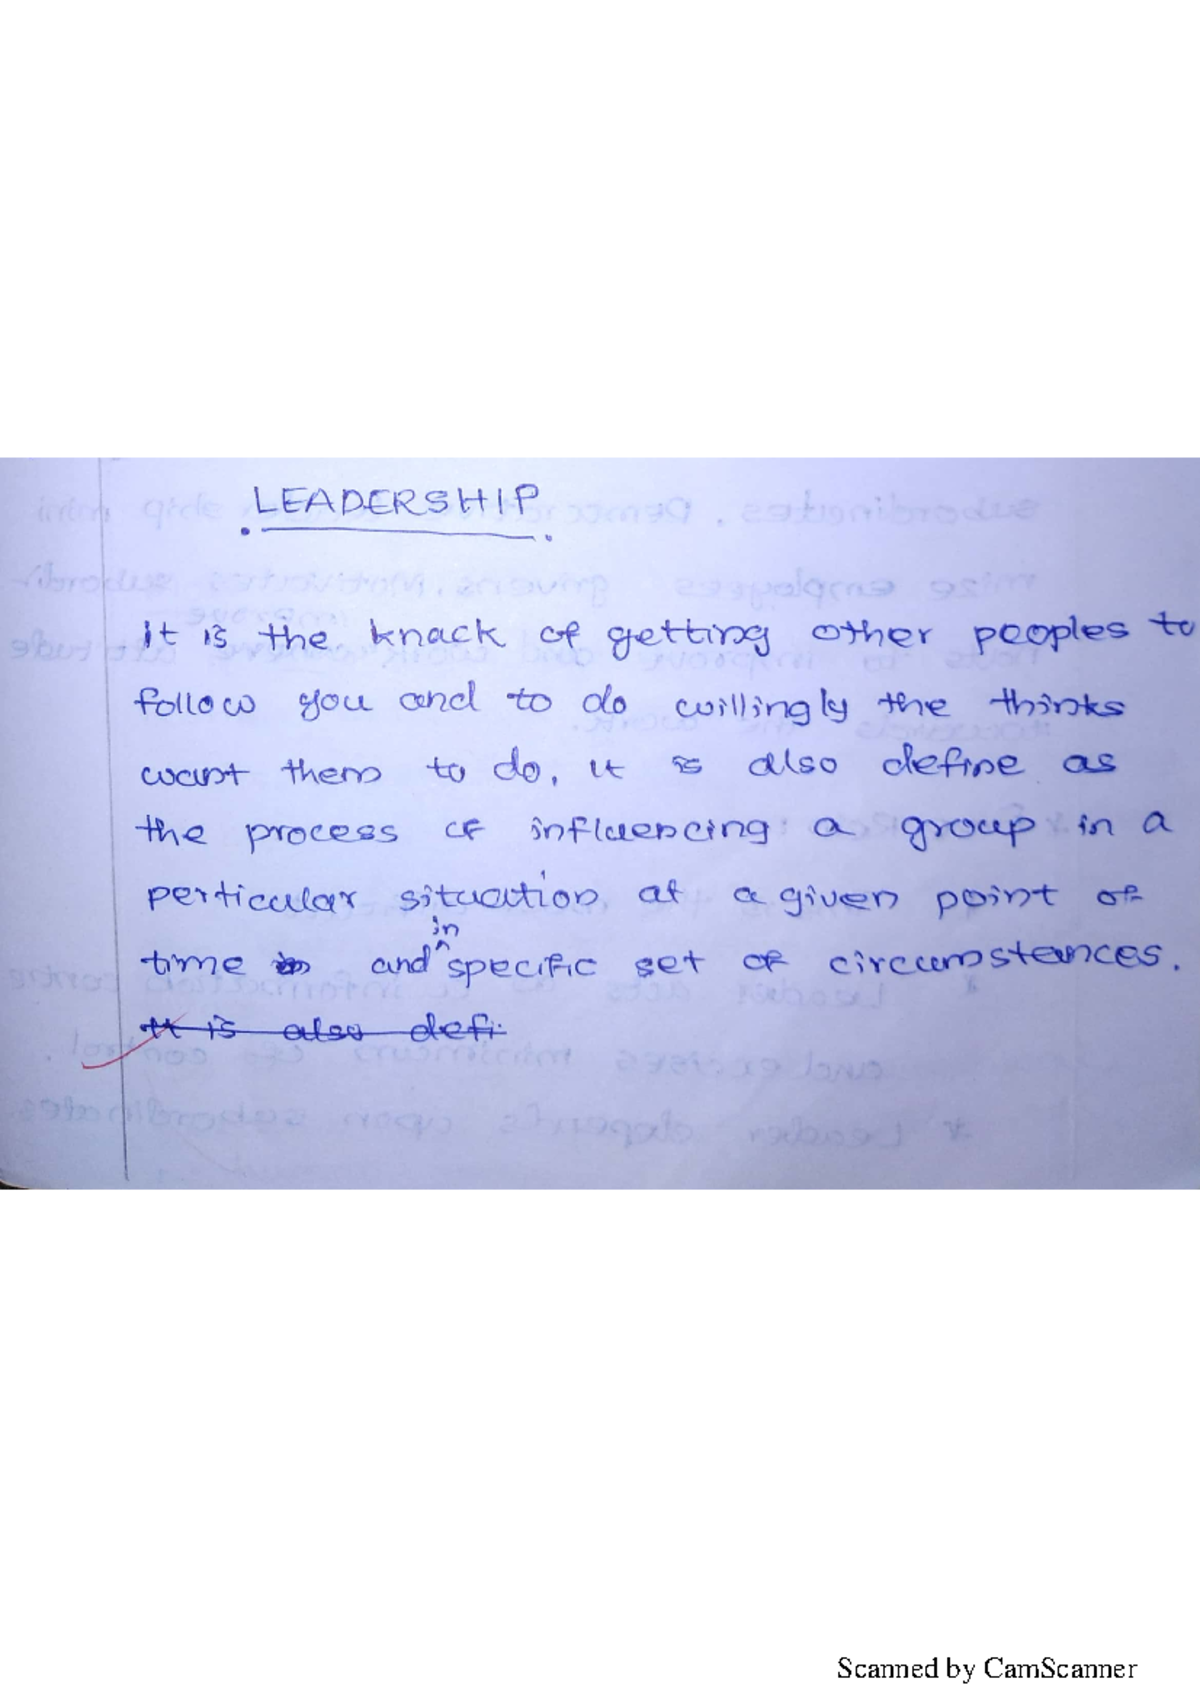 LEADERSHIP
It is the knack of getting other peoples to
follow you and to do willingly the thinks
want them to do, it is also define as
the process of influencing a group in a
perticular situation at a given point of
in
time and specific set of circumstances.
It is also defi
Scanned by CamScanner